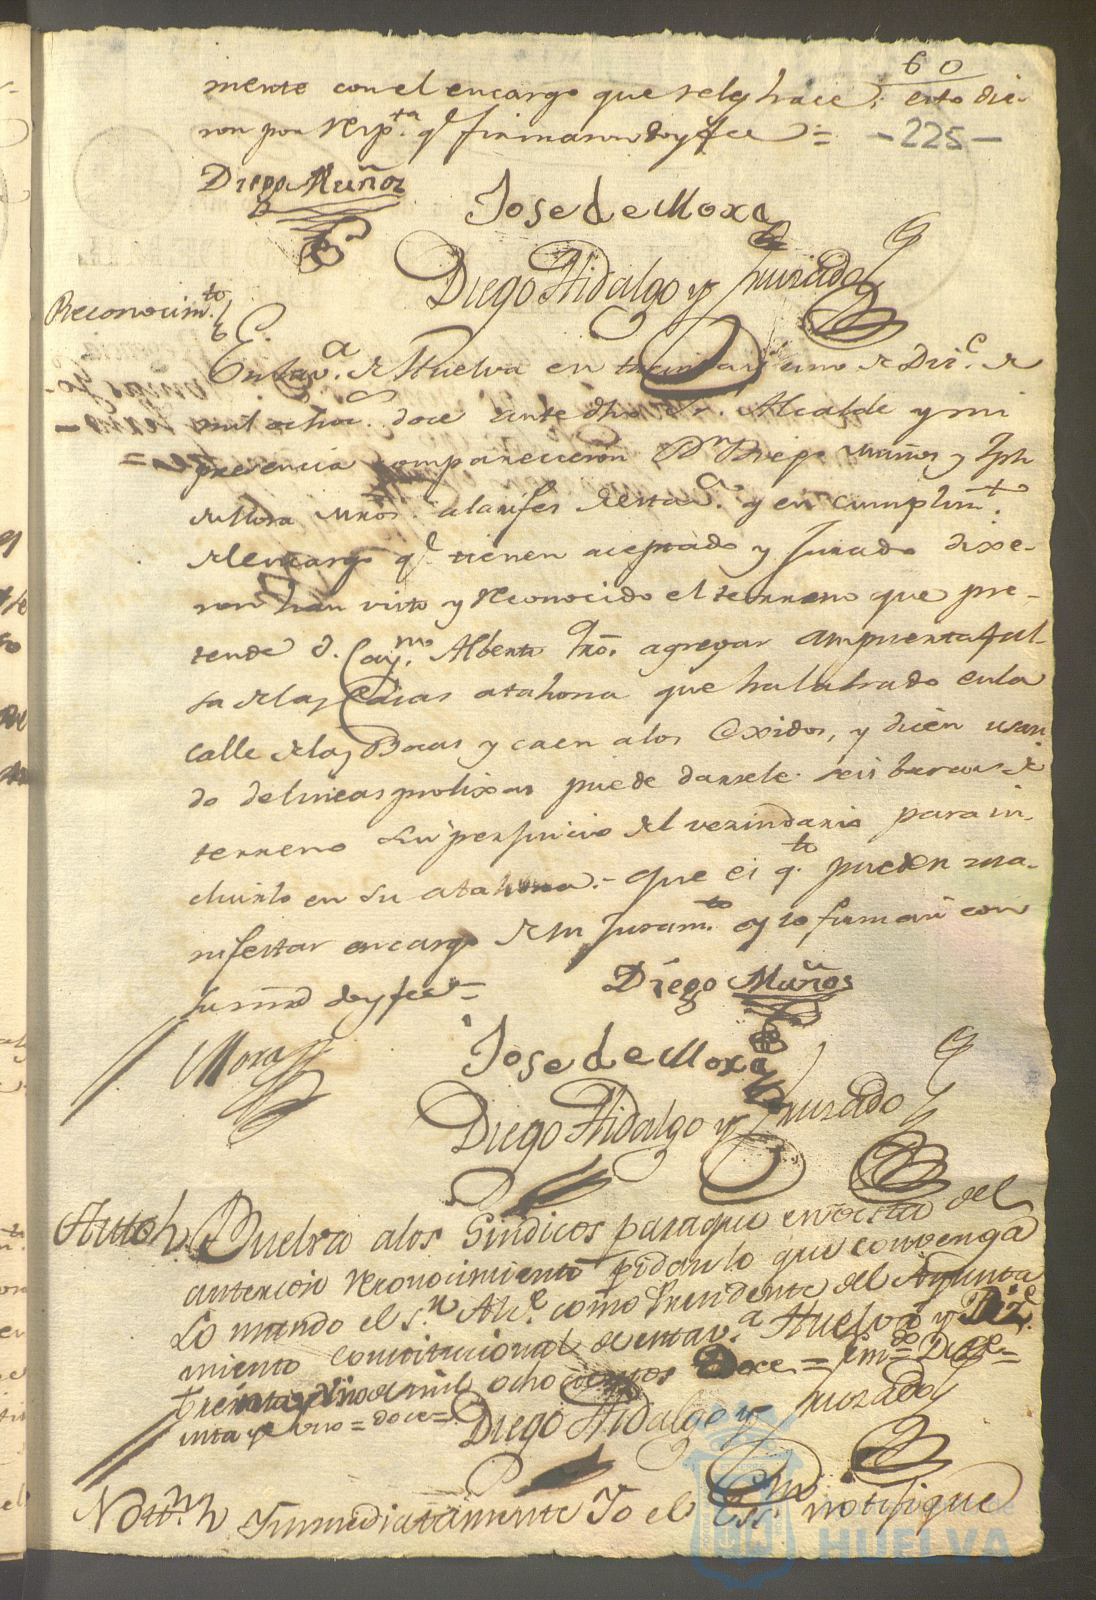 60
mente con el encargo que seles hace; esto die-
ron por resp.ta q.e firmaron doy fee =
-225-
Diego Muños
Jose de Mora
Diego Hidalgo y Jurado
Reconocim.to
En la v.a de Huelva en treinta y uno de Diz.e de
mil ochoc. doce ante dho Sr. Alcalde y mi
presencia comparecieron D.n Diego Muños y Jph
de Mora Mros. alarifes de esta v.a y en cumplim.t
del encargo q.e tienen aceptado y jurado dixe-
ron han visto y reconocido el terreno que pre-
tende d. Cay.no Alberto agregar a la puerta fal-
sa de las casas atahona que ha labrado en la
calle de las Bocas y caen a los Exidos, y dicen usan-
do de lineas prolixas puede darsele seis baras de
terreno sin perjuicio del vecindario para in-
cluirlo en su atahona.- que es q.to pueden ma-
nifestar en cargo de su juram.to y lo firman con
su mrd doy fee =
Diego Muños
Mora
Jose de Mora
Diego Hidalgo y Jurado
Auto
Buelva a los Sindicos para que en vista del
anterior reconocimiento pidan lo que convenga
Lo mando el S.r Alc.e como Precidente del Ayunta
miento Constitucional de esta v.a Huelva y Diz.e
treinta y uno de mil ochocientos Doce = Em.do Diz.e =
inta y uno = doce =
Diego Hidalgo y Jurado
Not.n
Immediatamente Yo el Ess.no notifique
HUELVA